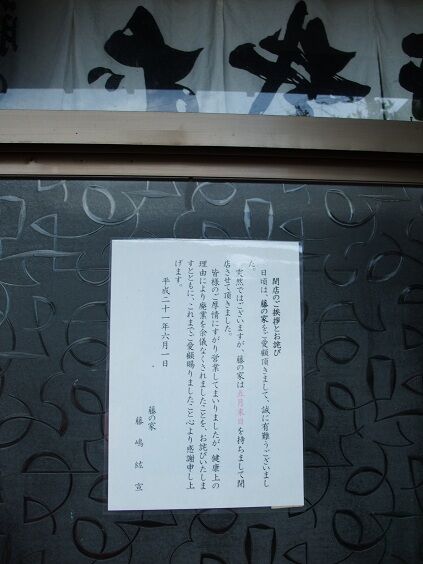 閉店のご挨拶とお詫び
日頃は、藤の家をご愛顧頂きまして、誠に有難うございまし
た。
突然ではございますが、藤の家は五月末日を持ちまして閉
店させて頂きました。
皆様のご厚情にすがり営業してまいりましたが、健康上の
理由により廃業を余儀なくされましたことを、お詫びいたしま
すとともに、これまでご愛顧賜りましたこと心より感謝申し上
げます。
平成二十一年六月一日
藤の家
藤嶋絃宣